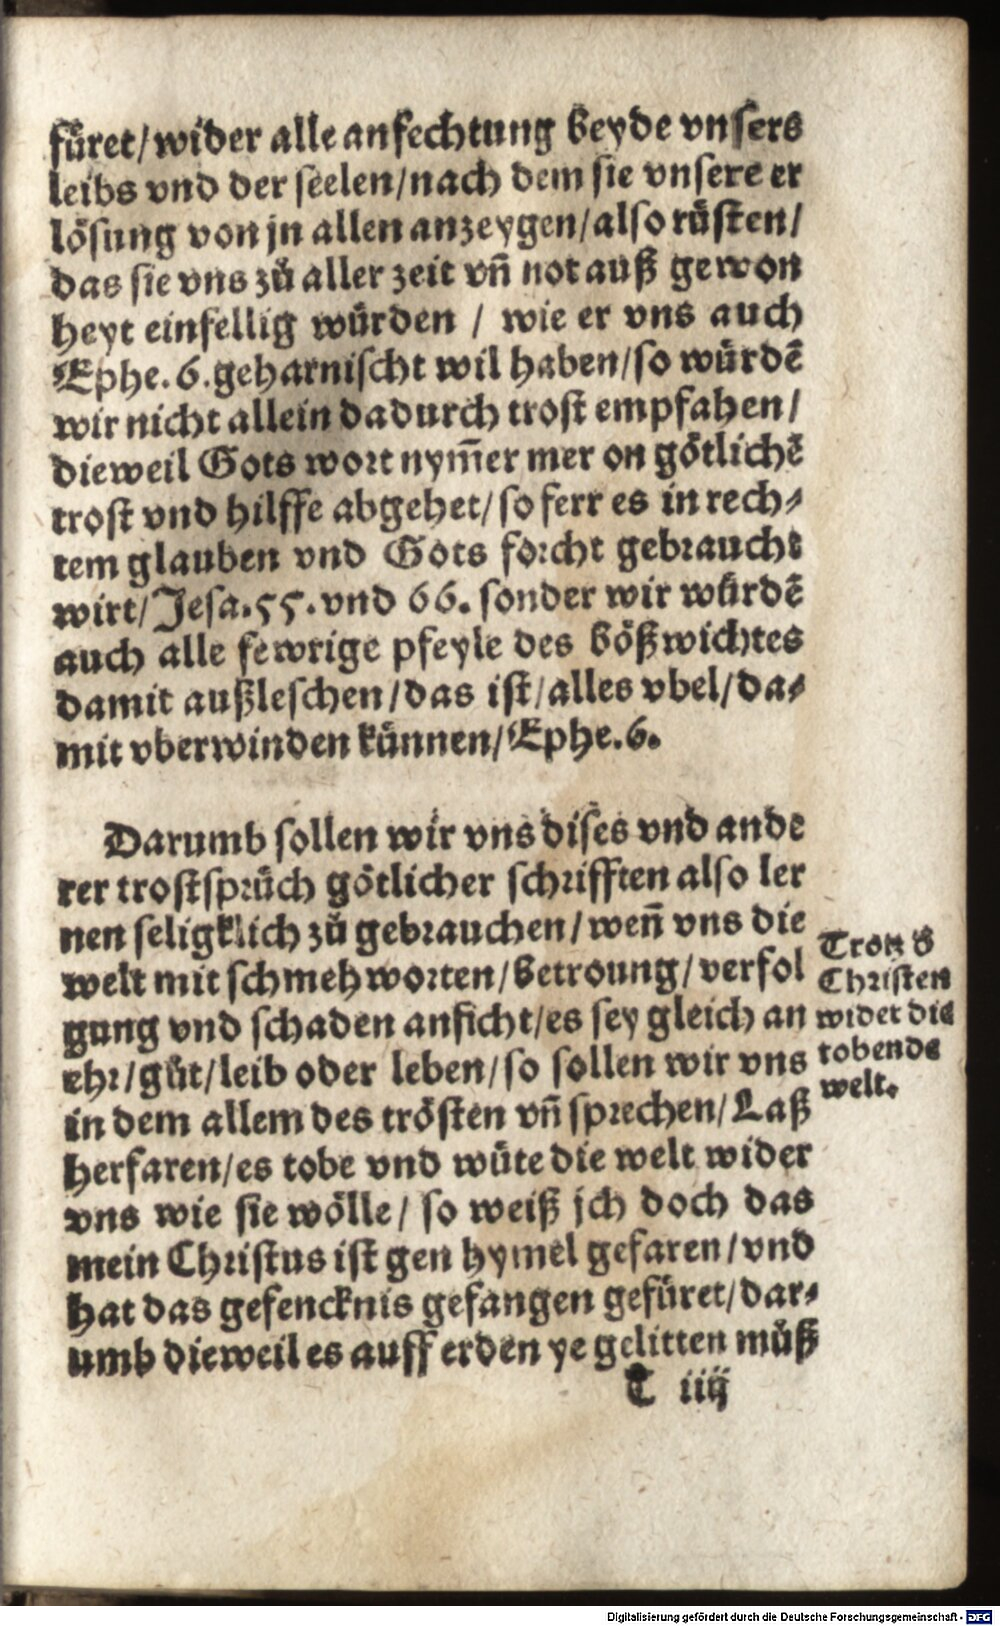 fuͤret/wider alle anfechtung beyde vnsers
leibs vnd der seelen/nach dem sie vnsere er
loͤsung von jn allen anzeygen/also ruͤsten/
das sie vns zuͦ aller zeit vn̄ not auß gewon
heyt einfellig wuͤrden / wie er vns auch
Ephe. 6. geharnischt wil haben/so wuͤrdē
wir nicht allein dadurch trost empfahen/
dieweil Gots wort nym̄er mer on goͤtlichē
trost vnd hilffe abgehet/so ferr es in rech⸗
tem glauben vnd Gots forcht gebraucht
wirt/Jesa. 55. vnd 66. sonder wir wuͤrdē
auch alle fewrige pfeyle des boͤßwichtes
damit außleschen/das ist/alles vbel/da⸗
mit vberwinden kuͤnnen/Ephe. 6.
Darumb sollen wir vns dises vnd ande
rer trostspruͤch goͤtlicher schrifften also ler
nen seligklich zuͦ gebrauchen/wen̄ vns die
welt mit schmehworten/betroung/verfol
gung vnd schaden anficht/es sey gleich an
ehr/guͦt/leib oder leben/so sollen wir vns
in dem allem des troͤsten vn̄ sprechen/Laß
herfaren/es tobe vnd wuͤte die welt wider
vns wie sie woͤlle/ so weiß jch doch das
mein Christus ist gen hymel gefaren/vnd
hat das gefencknis gefangen gefuͤret/dar⸗
umb dieweil es auff erden ye gelitten muͦß
T iiij
Trotz d'
Christen
wider die
tobende
welt.
Digitalisierung gefördert durch die Deutsche Forschungsgemeinschaft - DFG